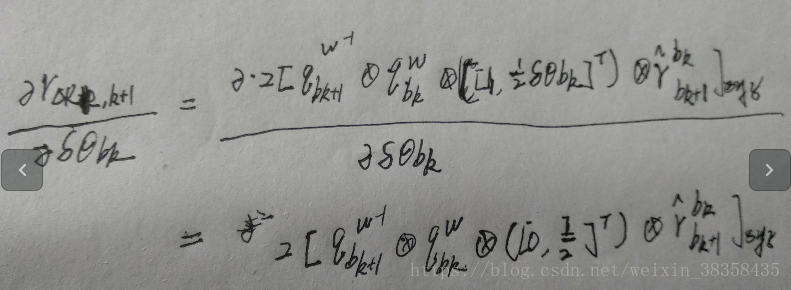 ∂r_{ΔR k,k+1} / ∂δθ_{bk} = ∂·2[ q_{bk+1}^{w^{-1}} ⊗ q_{bk}^{w} ⊗ ([1, ½δθ_{bk}]^T) ⊗ r̂_{bk+1}^{bk} ]_{xyz} / ∂δθ_{bk}
= 2[ q_{bk+1}^{w^{-1}} ⊗ q_{bk}^{w} ⊗ ([0, I/2]^T) ⊗ r̂_{bk+1}^{bk} ]_{xyz}
https://blog.csdn.net/weixin_38358435